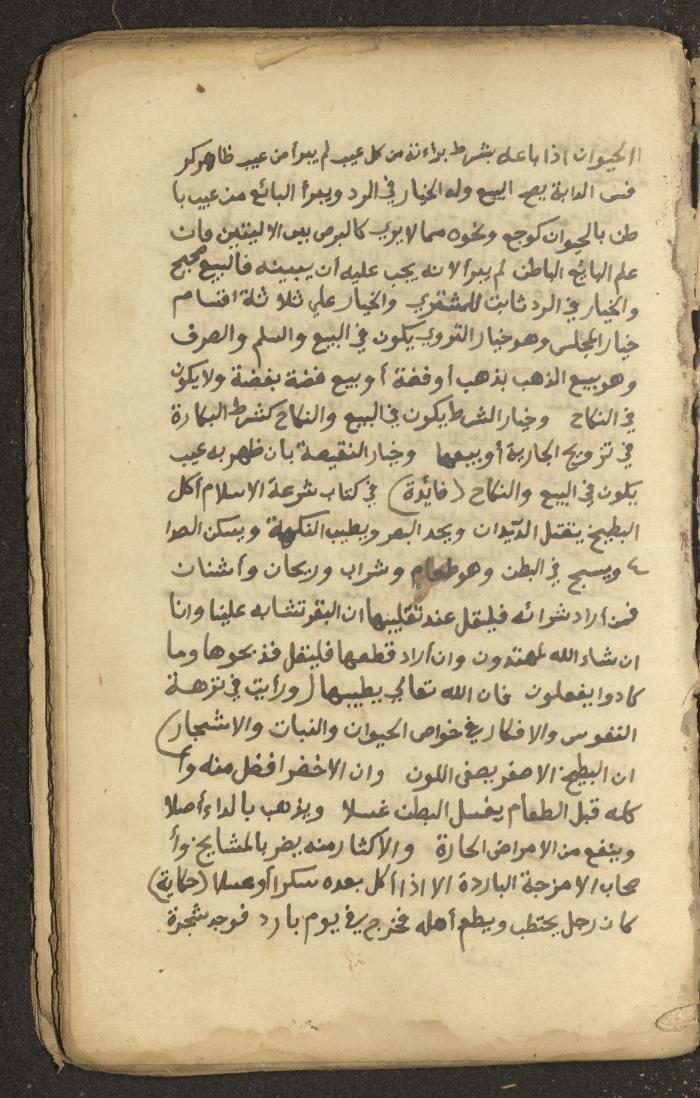 الحيوان اذا باعه بشرط براءته من كل عيب لم يبرأ من عيب ظاهر كر
فس الدابة يصح البيع وله الخيار في الرد ويبرأ البائع من عيب با
طن بالحيوان كوجع ونحوه مما لا يرى كالبرص بين الاليتين فان
علم البائع الباطن لم يبرأ لانه يجب عليه أن يبينه فالبيع صحيح
والخيار في الرد ثابت للمشتري والخيار علي ثلاثة اقسام
خيار المجلس وهو خيار التروي يكون في البيع والسلم والصرف
وهو بيع الذهب بذهب أو فضة أو بيع فضة بفضة ولا يكون
في النكاح وخيار الشرط يكون في البيع والنكاح كشرط البكارة
في تزويج الجارية أو بيعها وخيار النقيصة بان ظهر به عيب
يكون في البيع والنكاح (فائدة) في كتاب شرعة الاسلام أكل
البطيخ يقتل الديدان ويحد البصر ويطيب النكهة ويسكن الصدا
ع ويسبح في البطن وهو طعام وشراب وريحان وأشنان
فمن أراد شرائه فليقل عند تقليبها ان البقر تشابه علينا وانا
ان شاء الله لمهتدون وان أراد قطعها فليقل فذبحوها وما
كادوا يفعلون فان الله تعالي يطيبها (ورأيت في نزهة
النفوس والافكار في خواص الحيوان والنبات والاشجار)
ان البطيخ الاصفر يصفى اللون وان الاخضر افضل منه وأ
كله قبل الطعام يغسل البطن غسلا ويذهب بالداء أصلا
وينفع من الامراض الحارة والاكثار منه يضر بالمشايخ وأ
صحاب الامزجة الباردة الا اذا أكل بعده سكرا أو عسلا (حكاية)
كان رجل يحتطب ويطعم أهله فخرج في يوم بارد فوجد شجرة